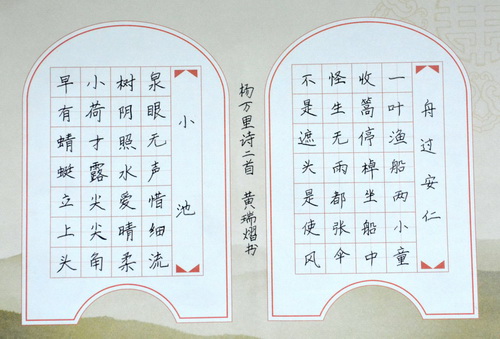 舟过安仁
一叶渔船两小童
收篙停棹坐船中
怪生无雨都张伞
不是遮头是使风
杨万里诗二首 黄瑞熠书
小池
泉眼无声惜细流
树阴照水爱晴柔
小荷才露尖尖角
早有蜻蜓立上头